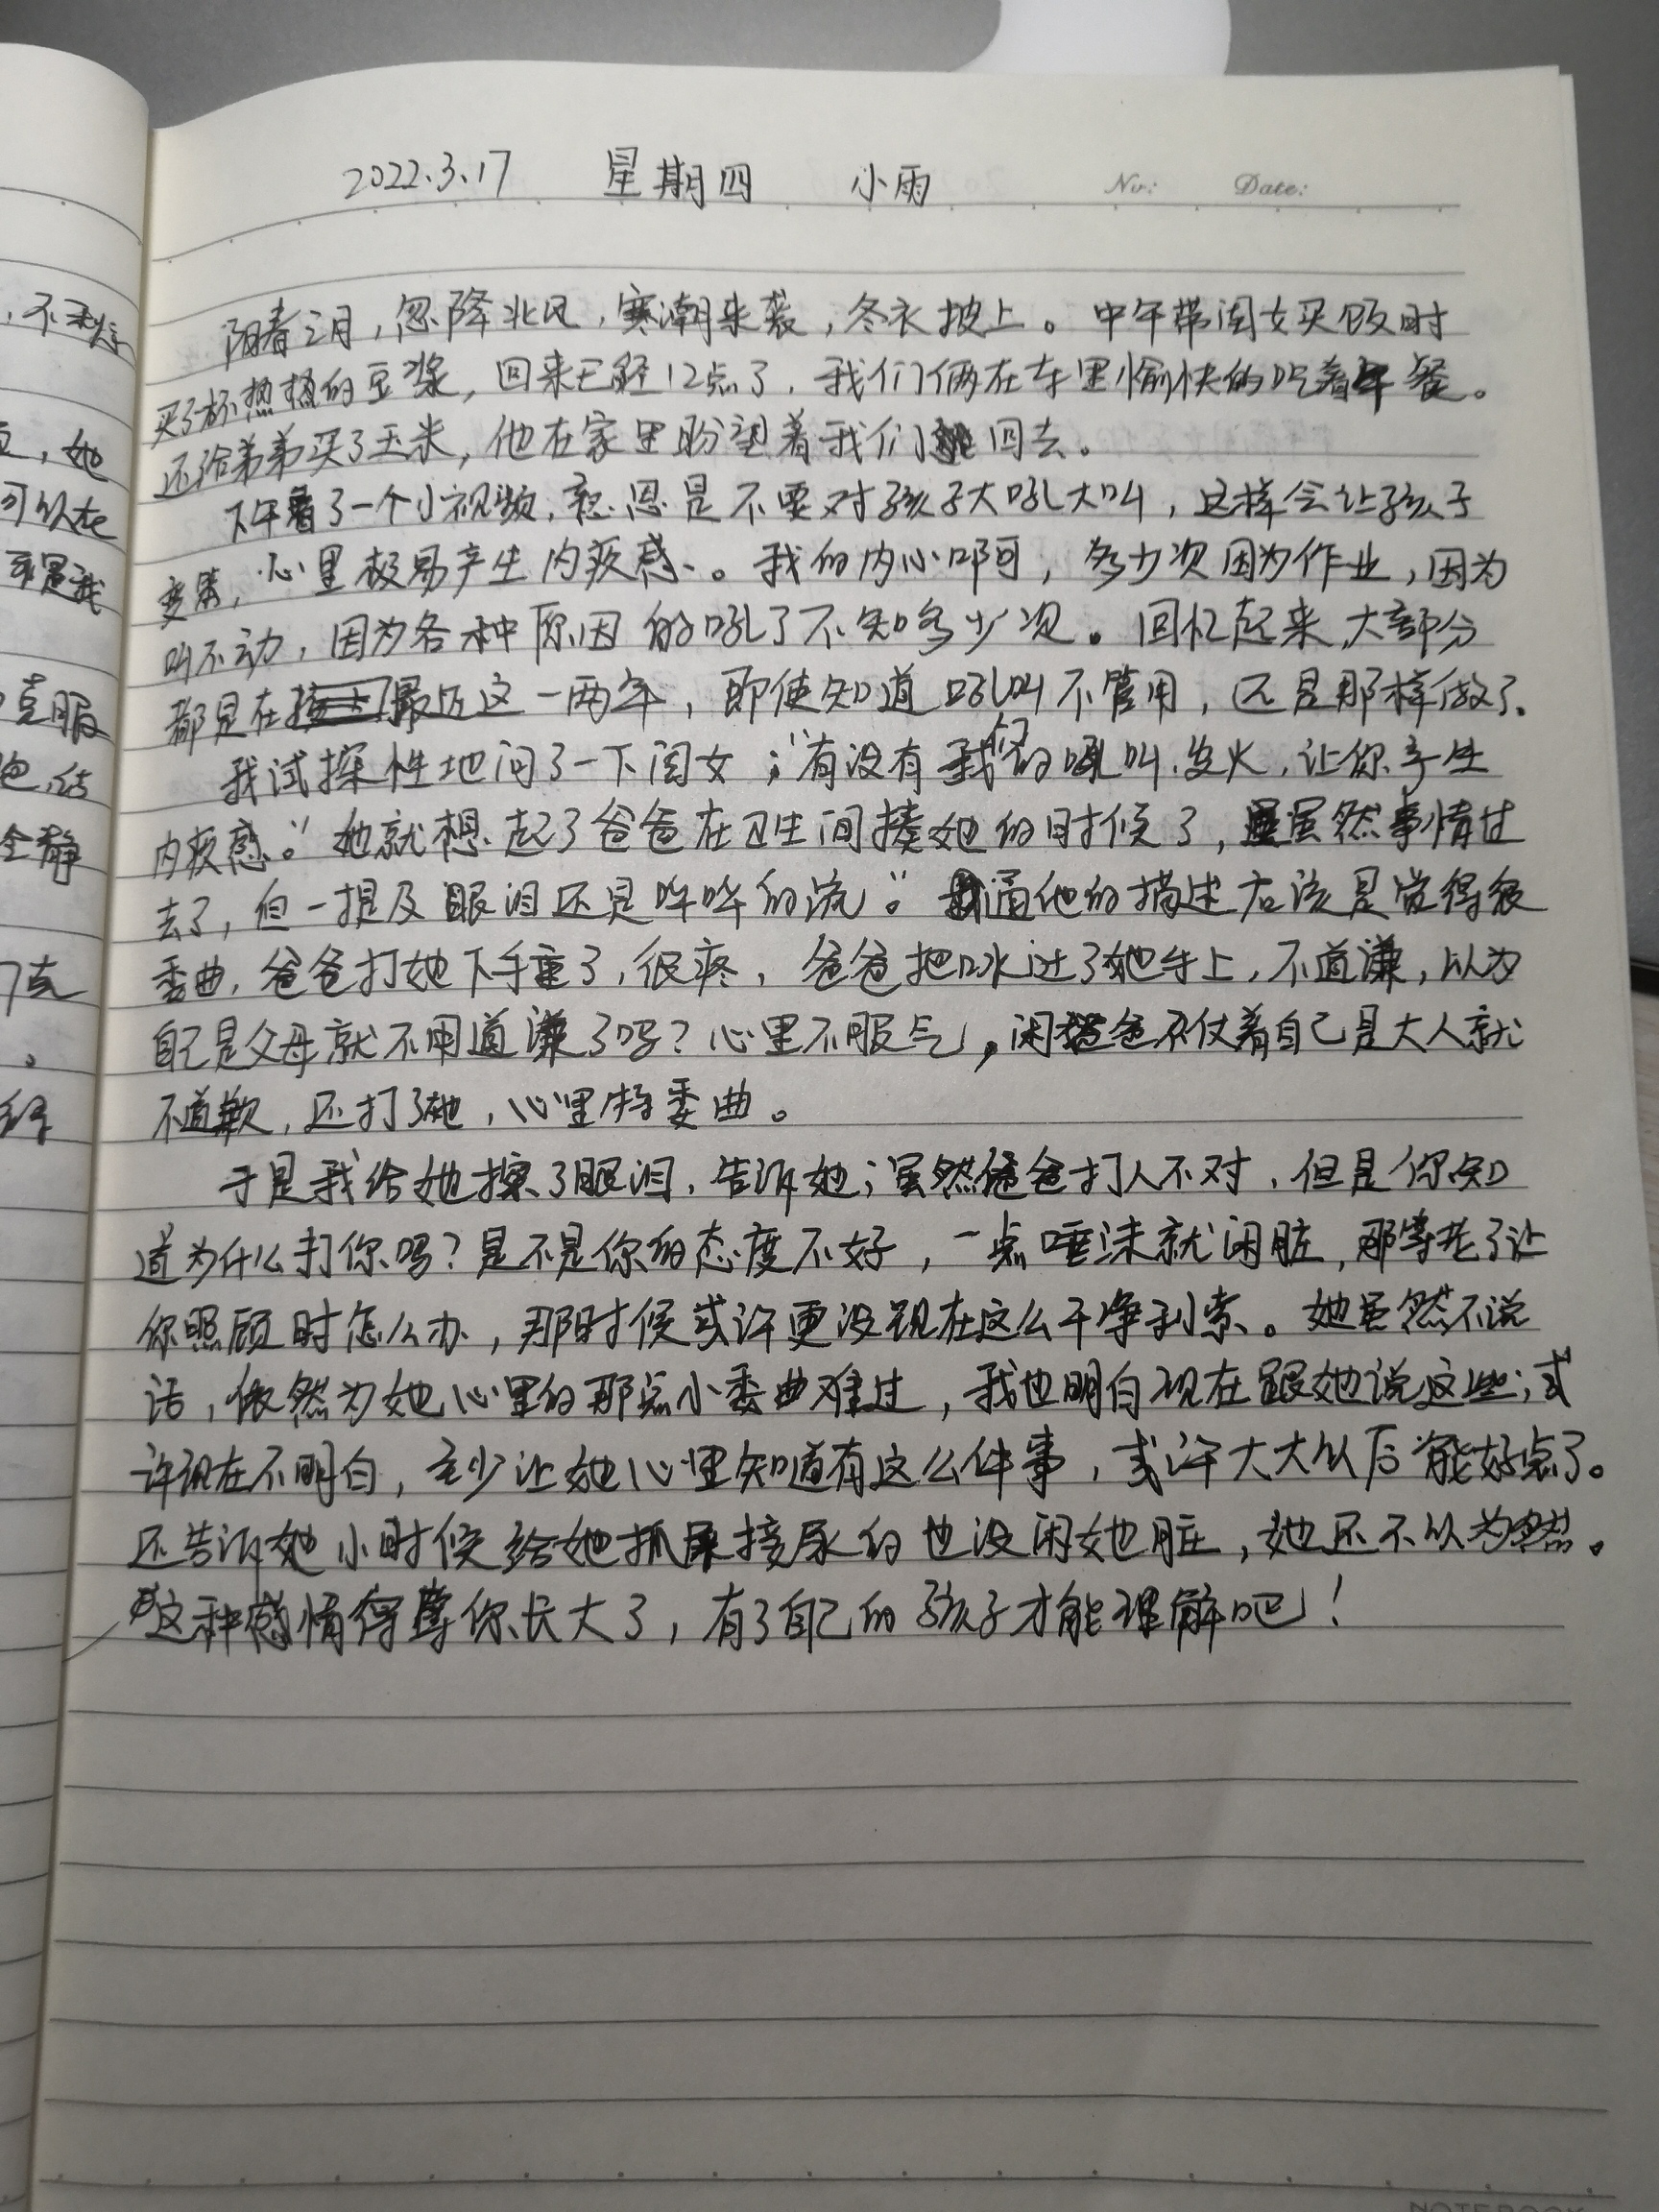 2022.3.17 星期四 小雨 No: Date:
阳春三月,忽降北风,寒潮来袭,冬衣披上。中午带闺女买饭时
买了杯热热的豆浆,回来已经12点了,我们俩在车里愉快的吃着午餐。
还给弟弟买了玉米,他在家里盼望着我们回去。
下午看了一个小视频,意思是不要对孩子大吼大叫,这样会让孩子
变笨,心里极易产生内疚感。我的内心啊,多少次因为作业,因为
叫不动,因为各种原因的吼了不知多少次。回忆起来,大部分
都是在最近这一两年,即使知道吼叫不管用,还是那样做了。
我试探性地问了一下闺女;“有没有我们的吼叫、发火,让你产生
内疚感。”她就想起了爸爸在卫生间揍她的时候了,虽然事情过
去了,但一提及眼泪还是哗哗的流。通他的描述应该是觉得很
委曲,爸爸打她下手重了,很疼,爸爸把口水迸了她手上,不道谦,以为
自己是父母就不用道谦了吗?心里不服气,闲爸爸不仗着自己是大人就
不道歉,还打了她,心里特委曲。
于是我给她擦了眼泪,告诉她;虽然爸爸打人不对,但是你知
道为什么打你吗?是不是你的态度不好,一点唾沫就闲脏,那等老了让
你照顾时怎么办,那时候或许更没现在这么干净利索。她虽然不说
话,依然为她心里的那点小委曲难过,我也明白现在跟她说这些;或
许现在不明白,至少让她心里知道有这么件事,或许大大以后能好点了。
还告诉她小时候给她抓屎接尿的也没闲她脏,她还不以为然。
这种感情得等你长大了,有了自己的孩子才能理解吧!
,不
,她
可以在
克服
全静
7点
。
NOTEBOOK